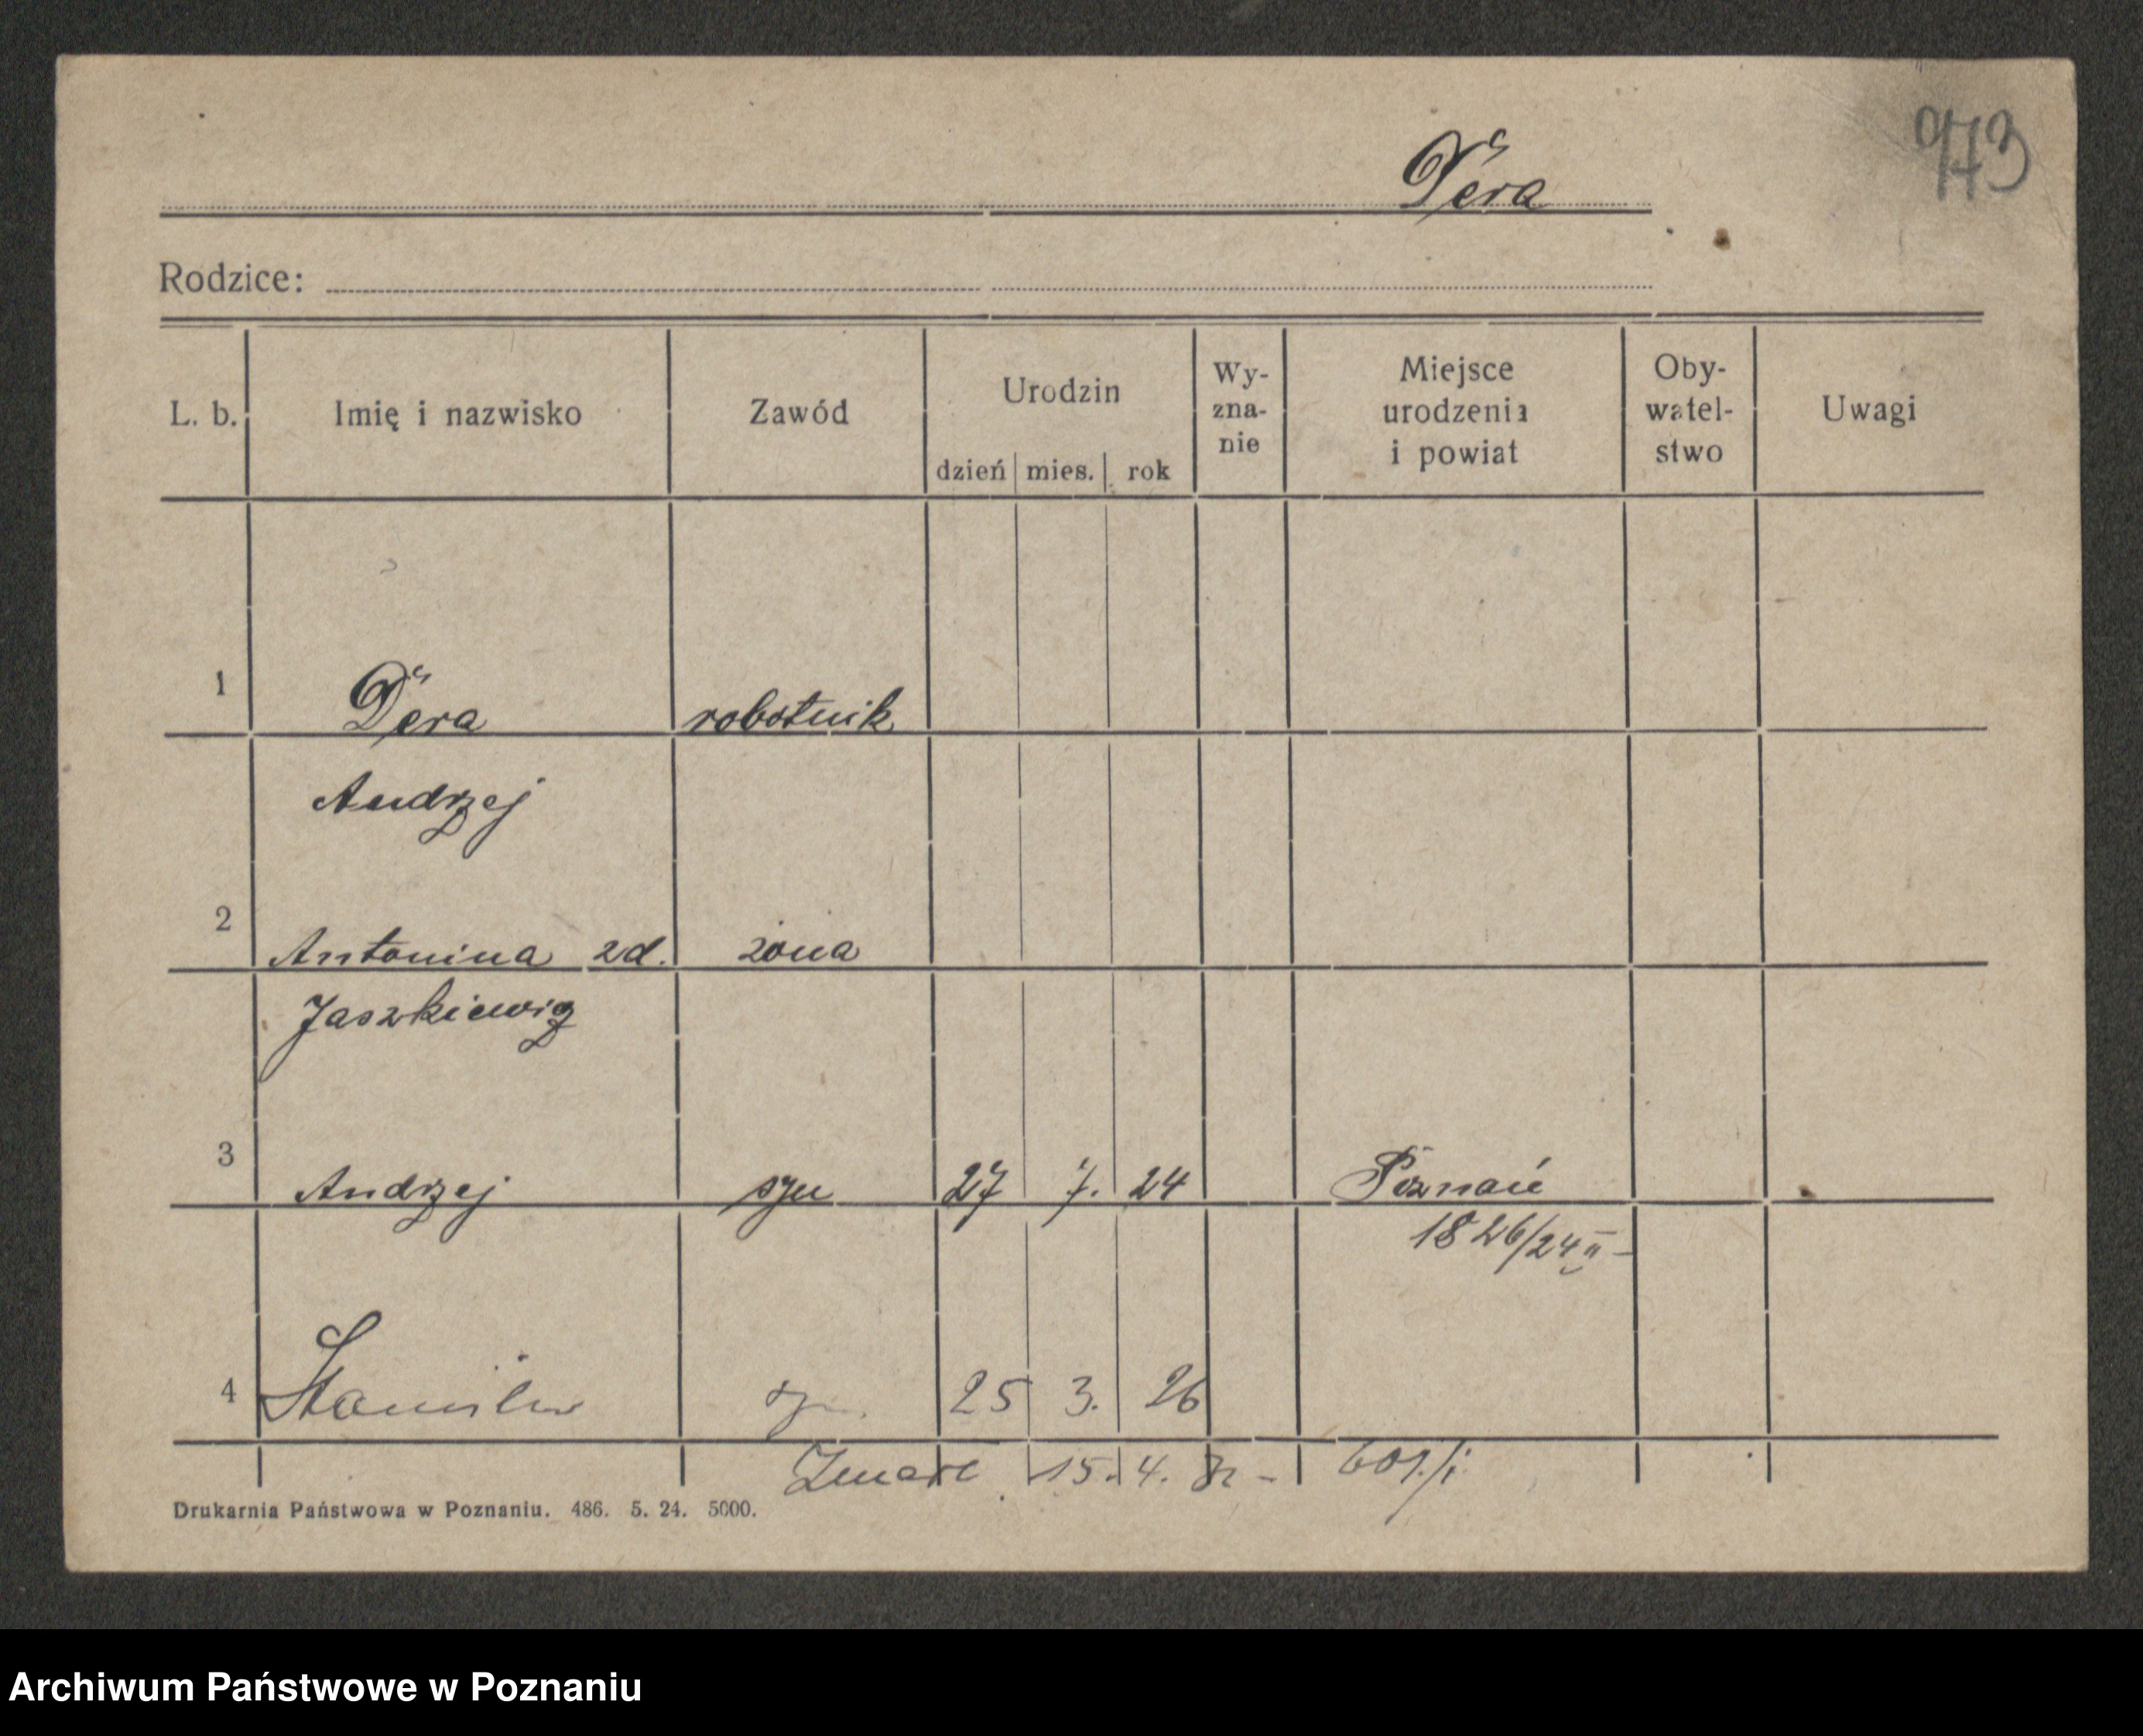 973
Dera
Rodzice:
L. b. Imię i nazwisko Zawód Urodzin dzień mies. rok Wy-zna-nie Miejsce urodzenia i powiat Oby-watel-stwo Uwagi
1 Dera robotnik
Andrzej
2 Antonina zd. żona
Jaszkiewicz
3 Andrzej syn 27 7. 24 Poznań
1826/24 II
4 Stanisław syn 25 3. 26
Zmarł 15. 4.
Drukarnia Państwowa w Poznaniu. 486. 5. 24. 5000.
Archiwum Państwowe w Poznaniu